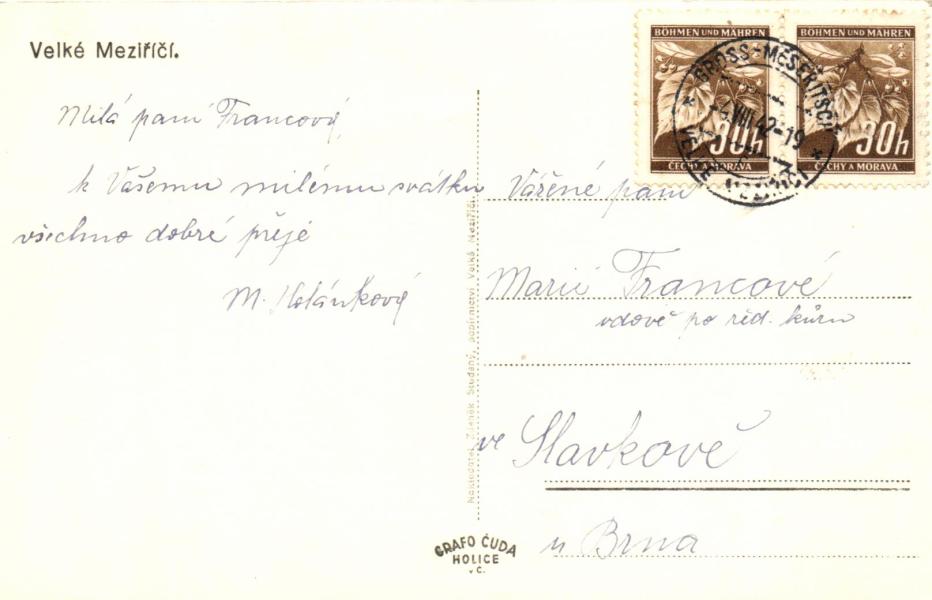 Velké Meziříčí.
Milá paní Francová,
k Vašemu milému svátku
všechno dobré přeje
M. Holánková
BÖHMEN UND MÄHREN
30h
ČECHY A MORAVA
BÖHMEN UND MÄHREN
30h
ČECHY A MORAVA
GROSS-MESERITSCH
VIII 42-19
VELKÉ MEZIŘÍČÍ
Vážené paní
Marii Francové
vdově po řed. kůru
ve Slavkově
u Brna
Nakladatel Zdeněk Studený, papírnictví Velké Meziříčí.
GRAFO ČUDA
HOLICE
v Č.